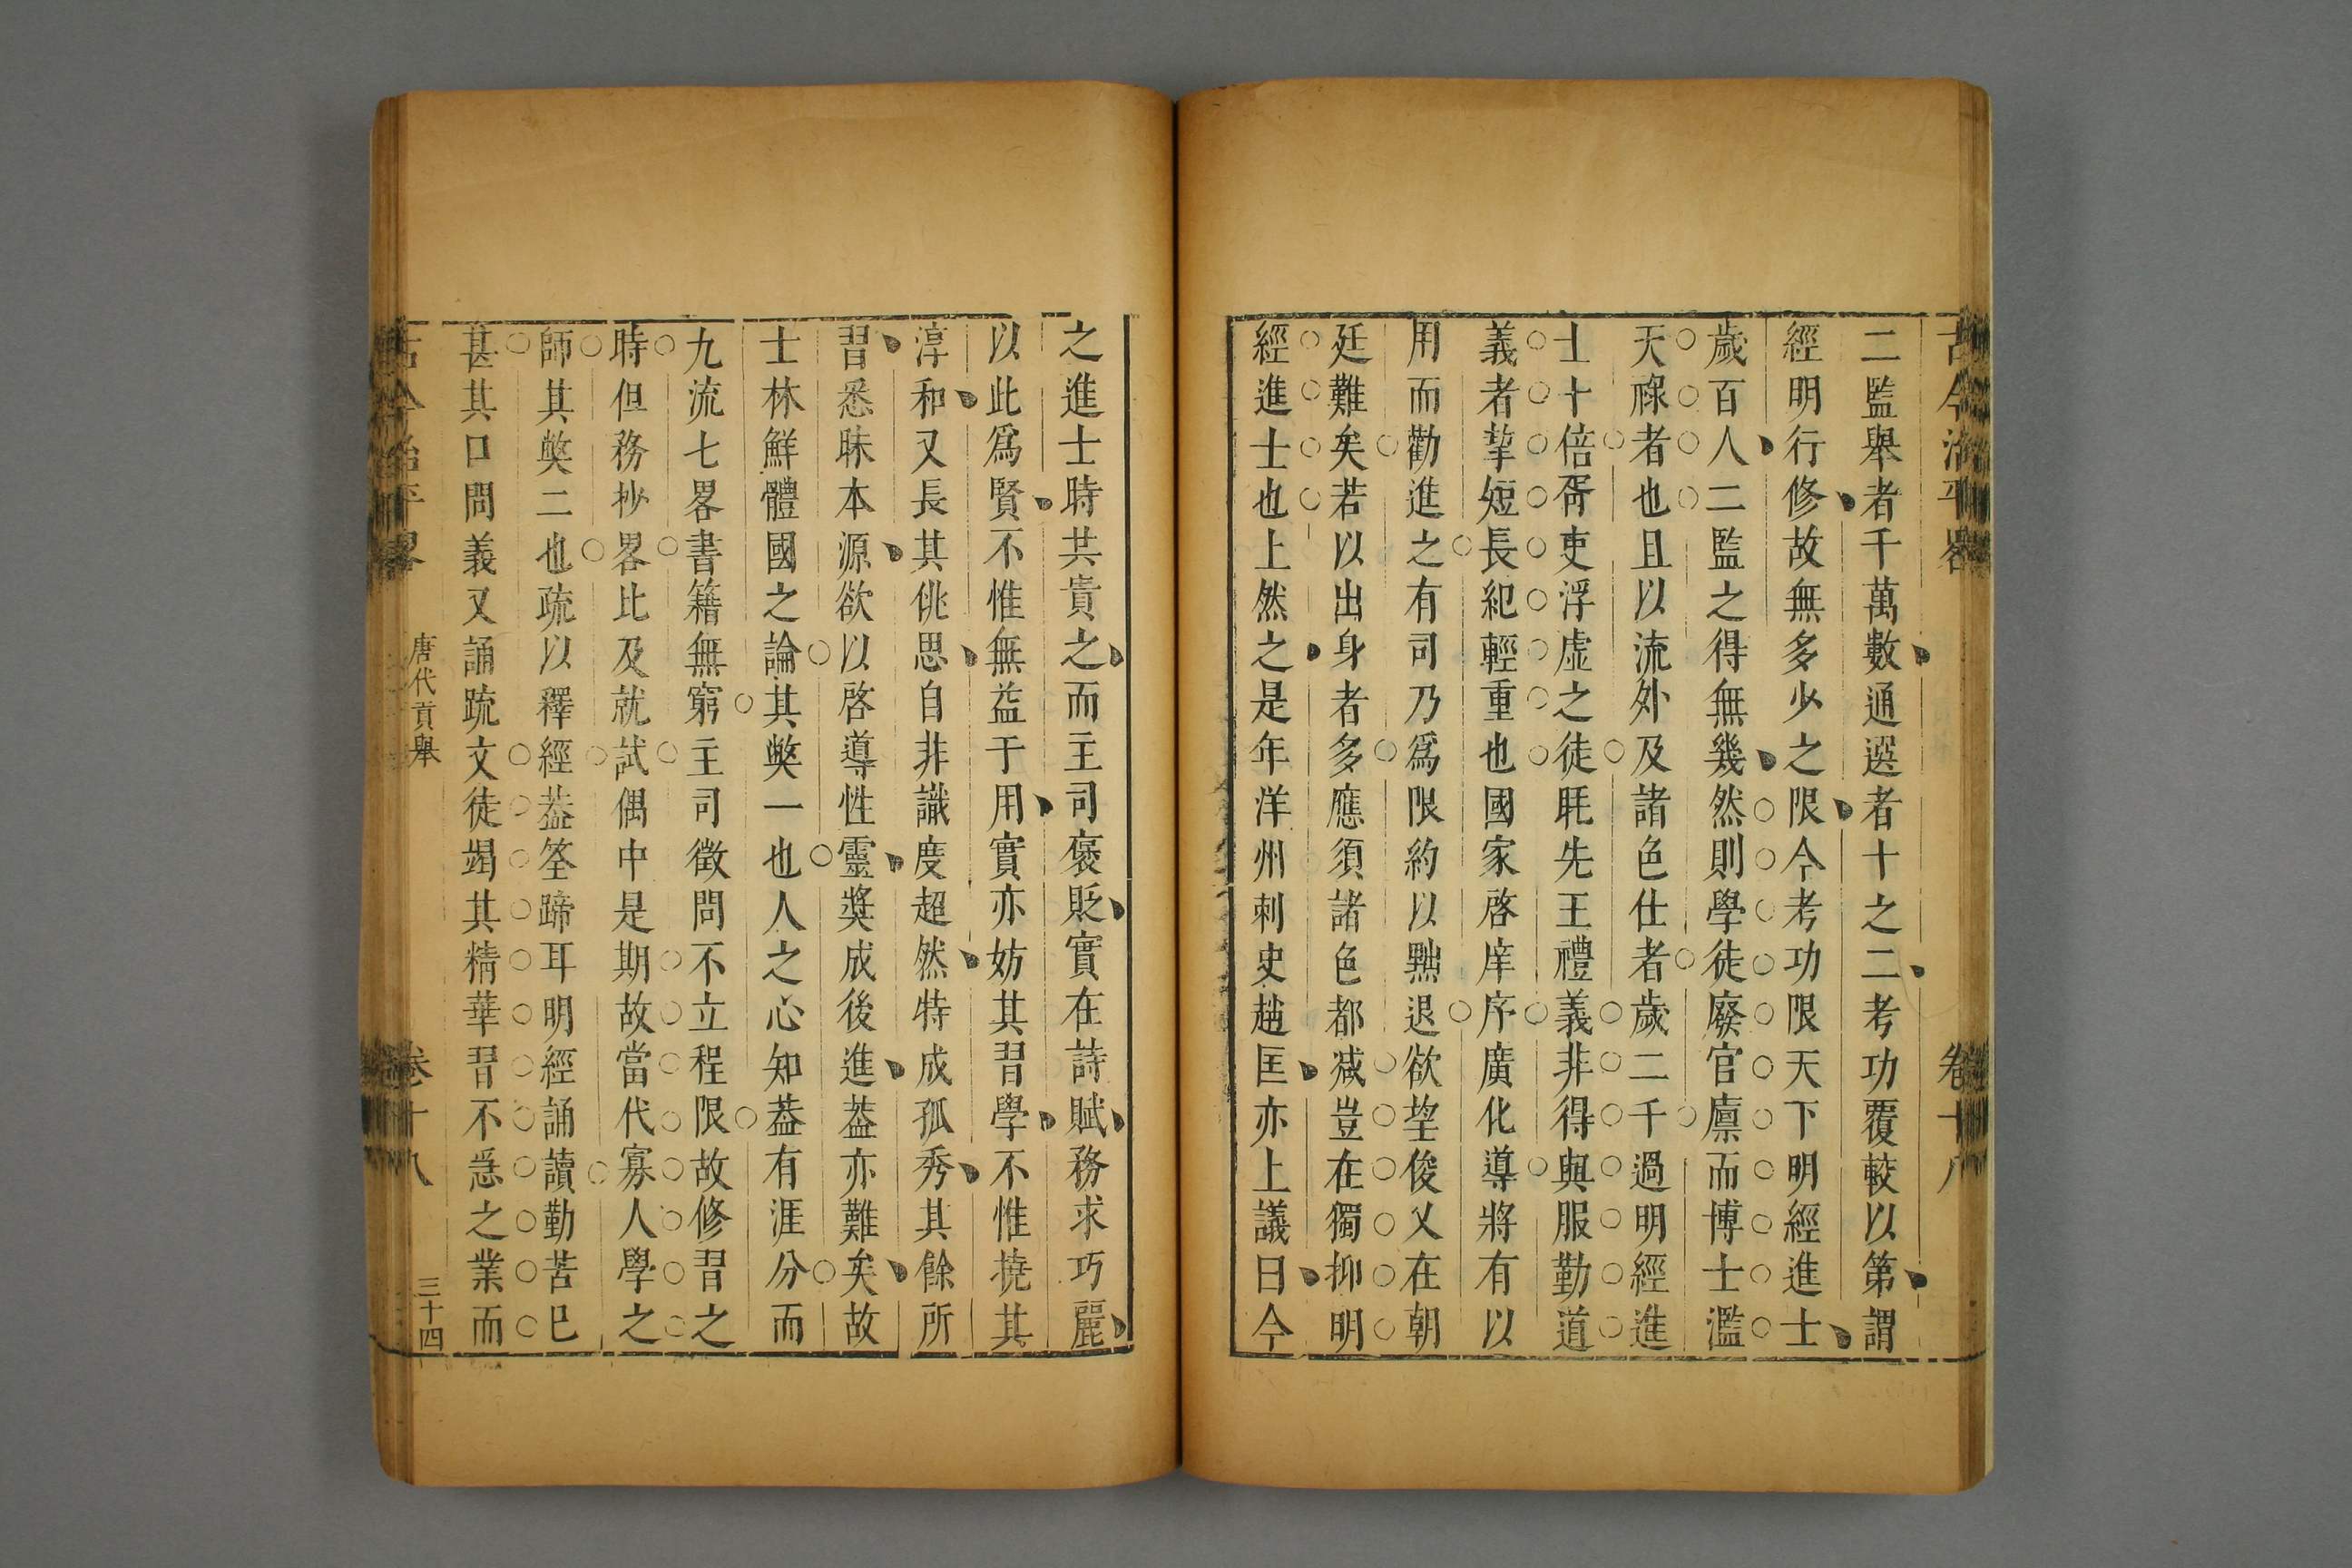 古今治平畧
卷十八
二監舉者千萬數通選者十之二考功覆較以第謂
經明行修故無多少之限今考功限天下明經進士
歲百人二監之得無幾然則學徒廢官廪而博士濫
天祿者也且以流外及諸色仕者歲二千過明經進
士十倍胥吏浮虛之徒眊先王禮義非得與服勤道
義者挈短長絜輕重也國家啓庠序廣化導將有以
用而勸進之有司乃爲限約以黜退欲望俊乂在朝
廷難矣若以出身者多應須諸色都减豈在獨抑明
經進士也上然之是年洋州刺史趙匡亦上議曰今
之進士時共貴之而主司褒貶實在詩賦務求巧麗
以此爲賢不惟無益于用實亦妨其習學不惟撓其
淳和又長其佻思自非識度超然特成孤秀其餘所
習悉昧本源欲以啓導性靈獎成後進葢亦難矣故
士林鮮體國之論其獘一也人之心知葢有涯分而
九流七畧書籍無窮主司徵問不立程限故修習之
時但務抄畧比及就試偶中是期故當代寡人學之
師其獘二也疏以釋經葢筌蹄耳明經誦讀勤苦巳
甚其口問義又誦疏文徒竭其精華習不急之業而
古今治平畧
唐代貢舉
卷十八
三十四